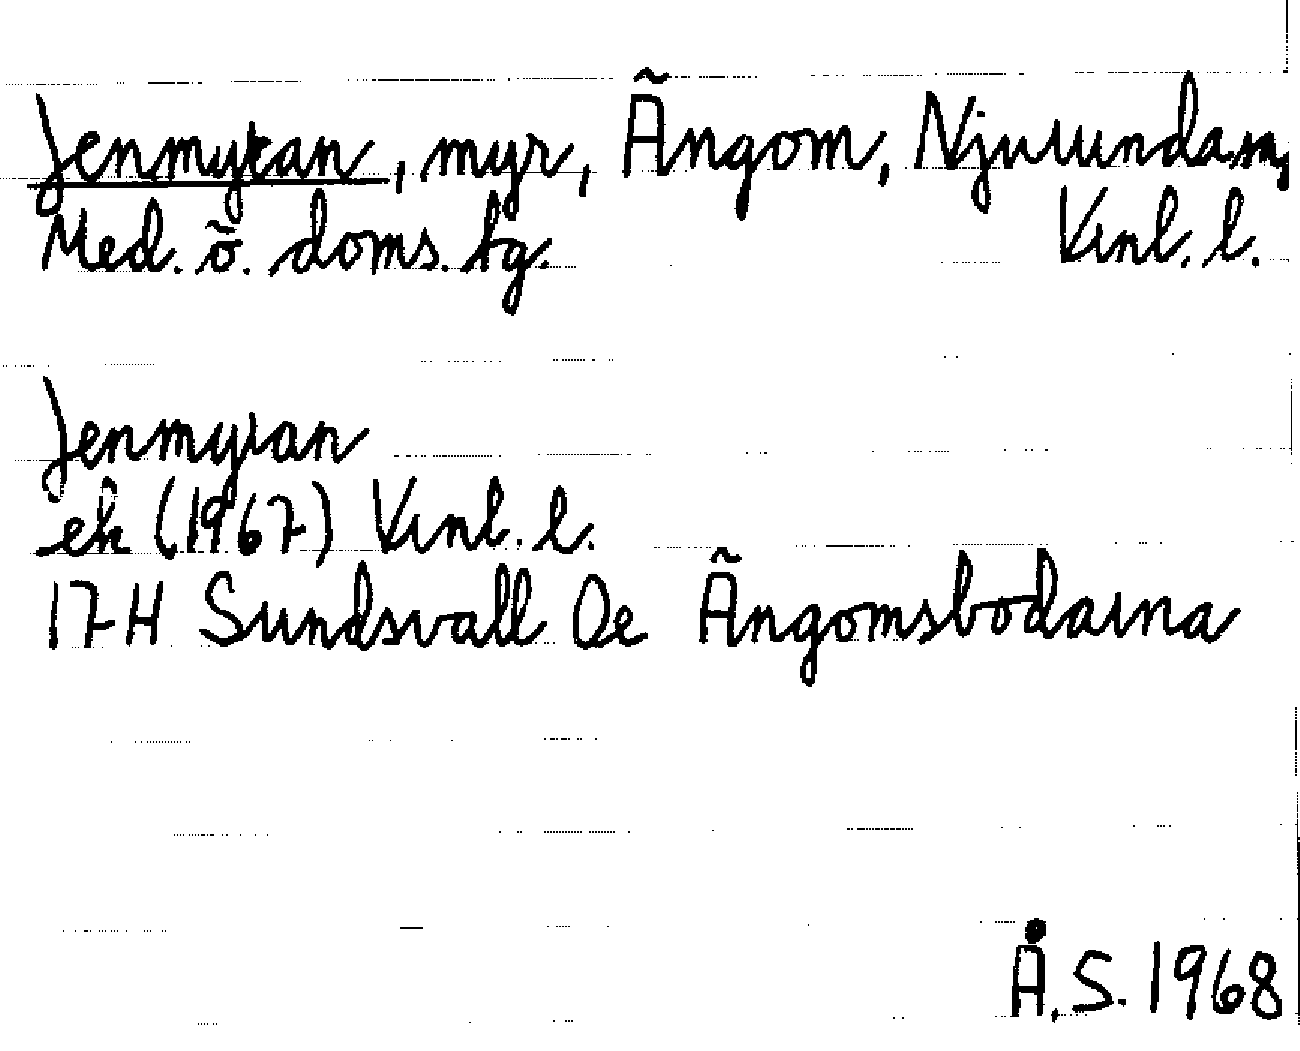 Jenmyran, myr, Ängom, Njurunda sn,
Med. ö. doms. tg. Vnl. l.
Jenmyran
ek (1967) Vnl. l.
17H Sundsvall 0e Ängomsbodarna
Å. S. 1968